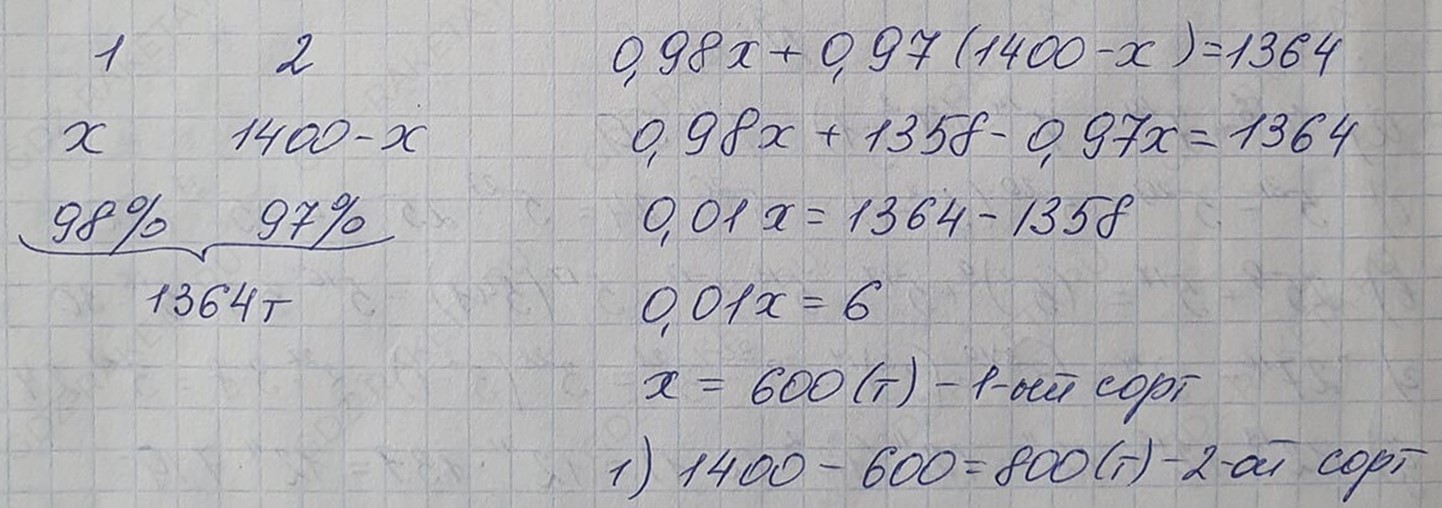 1 2
x 1400-x
98% 97%
1364т
0,98x + 0,97(1400-x)=1364
0,98x + 1358- 0,97x = 1364
0,01x = 1364-1358
0,01x = 6
x = 600(т) - 1-ый сорт
1) 1400 - 600 = 800(т) - 2-ой сорт